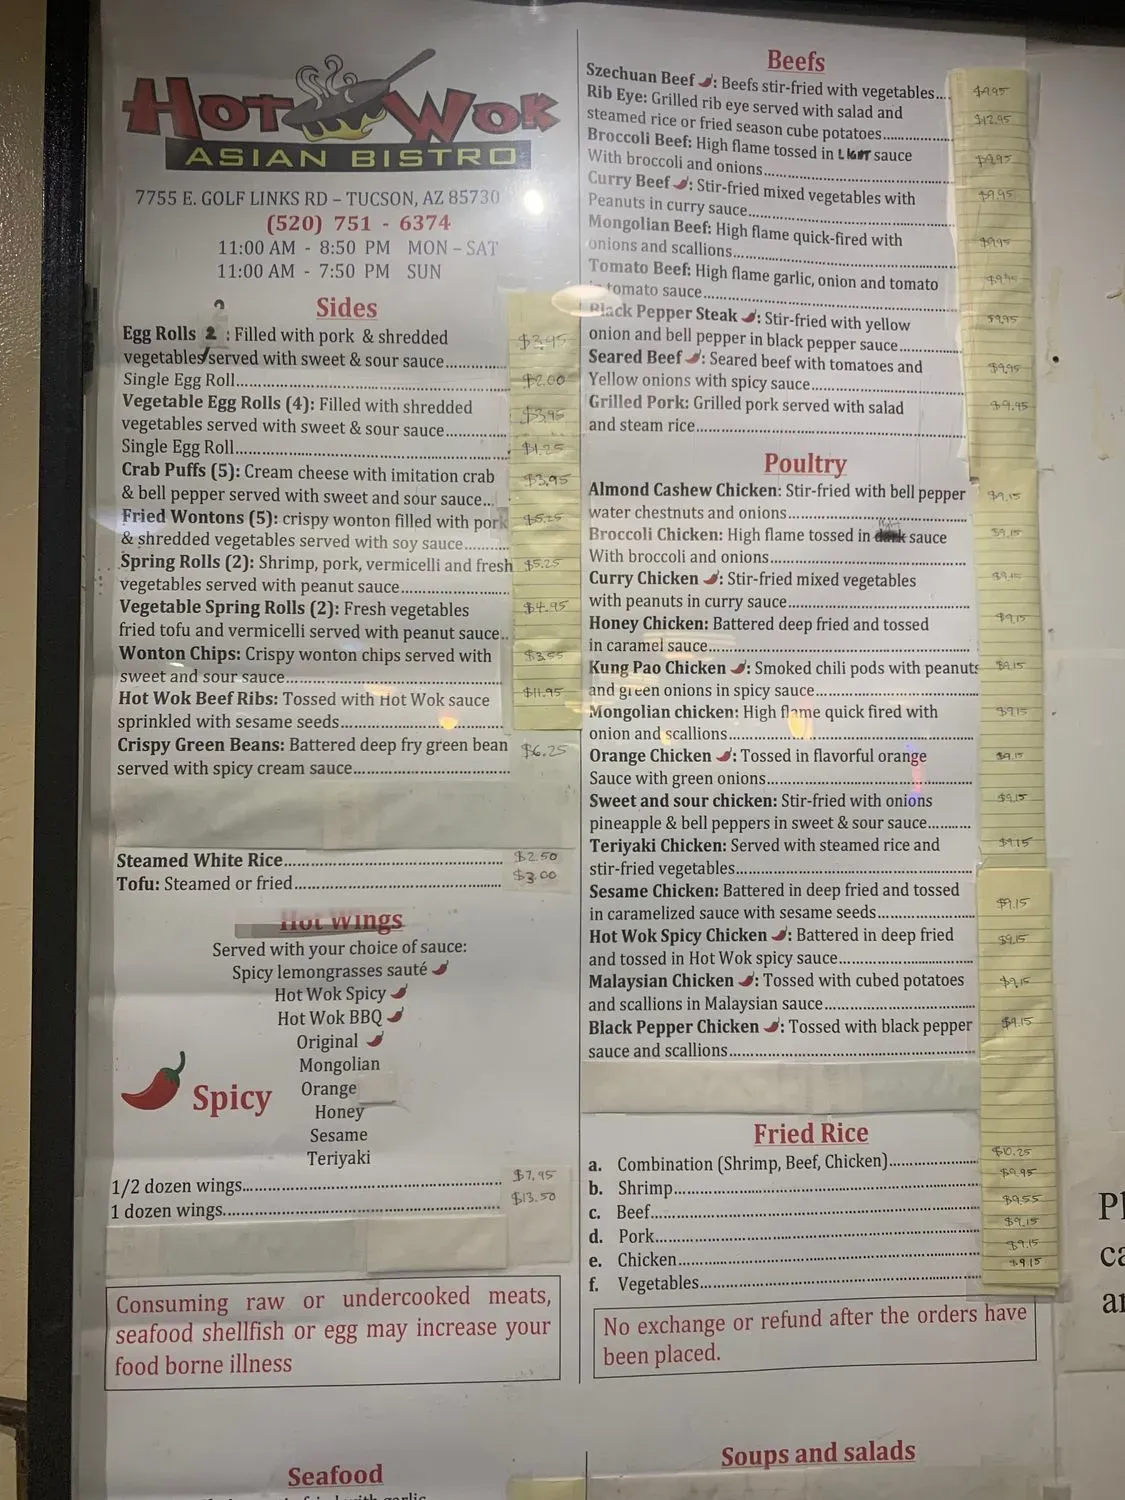 HOT WOK
ASIAN BISTRO
7755 E. GOLF LINKS RD – TUCSON, AZ 85730
(520) 751 - 6374
11:00 AM - 8:50 PM MON – SAT
11:00 AM - 7:50 PM SUN
Sides
2
Egg Rolls 2 : Filled with pork & shredded
vegetables served with sweet & sour sauce............ $3.95
Single Egg Roll............ $2.00
Vegetable Egg Rolls (4): Filled with shredded
vegetables served with sweet & sour sauce............ $3.95
Single Egg Roll............ $1.25
Crab Puffs (5): Cream cheese with imitation crab
& bell pepper served with sweet and sour sauce... $3.95
Fried Wontons (5): crispy wonton filled with pork
& shredded vegetables served with soy sauce......... $5.25
Spring Rolls (2): Shrimp, pork, vermicelli and fresh
vegetables served with peanut sauce............ $5.25
Vegetable Spring Rolls (2): Fresh vegetables
fried tofu and vermicelli served with peanut sauce.. $4.95
Wonton Chips: Crispy wonton chips served with
sweet and sour sauce............ $3.55
Hot Wok Beef Ribs: Tossed with Hot Wok sauce
sprinkled with sesame seeds............ $11.95
Crispy Green Beans: Battered deep fry green bean
served with spicy cream sauce............ $6.25
Steamed White Rice............ $2.50
Tofu: Steamed or fried............ $3.00
Hot Wings
Served with your choice of sauce:
Spicy lemongrasses sauté
Hot Wok Spicy
Hot Wok BBQ
Original
Mongolian
Orange
Honey
Sesame
Teriyaki
Spicy
1/2 dozen wings............ $7.95
1 dozen wings............ $13.50
Consuming raw or undercooked meats,
seafood shellfish or egg may increase your
food borne illness
Seafood
Beefs
Szechuan Beef : Beefs stir-fried with vegetables.... $9.95
Rib Eye: Grilled rib eye served with salad and
steamed rice or fried season cube potatoes............ $12.95
Broccoli Beef: High flame tossed in LIGHT sauce
With broccoli and onions............ $9.95
Curry Beef : Stir-fried mixed vegetables with
Peanuts in curry sauce............ $9.95
Mongolian Beef: High flame quick-fired with
onions and scallions............ $9.95
Tomato Beef: High flame garlic, onion and tomato
in tomato sauce............ $9.95
Black Pepper Steak : Stir-fried with yellow
onion and bell pepper in black pepper sauce............ $9.95
Seared Beef : Seared beef with tomatoes and
Yellow onions with spicy sauce............ $9.95
Grilled Pork: Grilled pork served with salad
and steam rice............ $9.95
Poultry
Almond Cashew Chicken: Stir-fried with bell pepper
water chestnuts and onions............ $9.15
Broccoli Chicken: High flame tossed in dark sauce
With broccoli and onions............ $9.15
Curry Chicken : Stir-fried mixed vegetables
with peanuts in curry sauce............ $9.15
Honey Chicken: Battered deep fried and tossed
in caramel sauce............ $9.15
Kung Pao Chicken : Smoked chili pods with peanuts
and green onions in spicy sauce............ $9.15
Mongolian chicken: High flame quick fired with
onion and scallions............ $9.15
Orange Chicken : Tossed in flavorful orange
Sauce with green onions............ $9.15
Sweet and sour chicken: Stir-fried with onions
pineapple & bell peppers in sweet & sour sauce......... $9.15
Teriyaki Chicken: Served with steamed rice and
stir-fried vegetables............ $9.15
Sesame Chicken: Battered in deep fried and tossed
in caramelized sauce with sesame seeds............ $9.15
Hot Wok Spicy Chicken : Battered in deep fried
and tossed in Hot Wok spicy sauce............ $9.15
Malaysian Chicken : Tossed with cubed potatoes
and scallions in Malaysian sauce............ $9.15
Black Pepper Chicken : Tossed with black pepper
sauce and scallions............ $9.15
Fried Rice
a. Combination (Shrimp, Beef, Chicken)............ $10.25
b. Shrimp............ $9.95
c. Beef............ $9.55
d. Pork............ $9.15
e. Chicken............ $9.15
f. Vegetables............ $9.15
No exchange or refund after the orders have
been placed.
Soups and salads